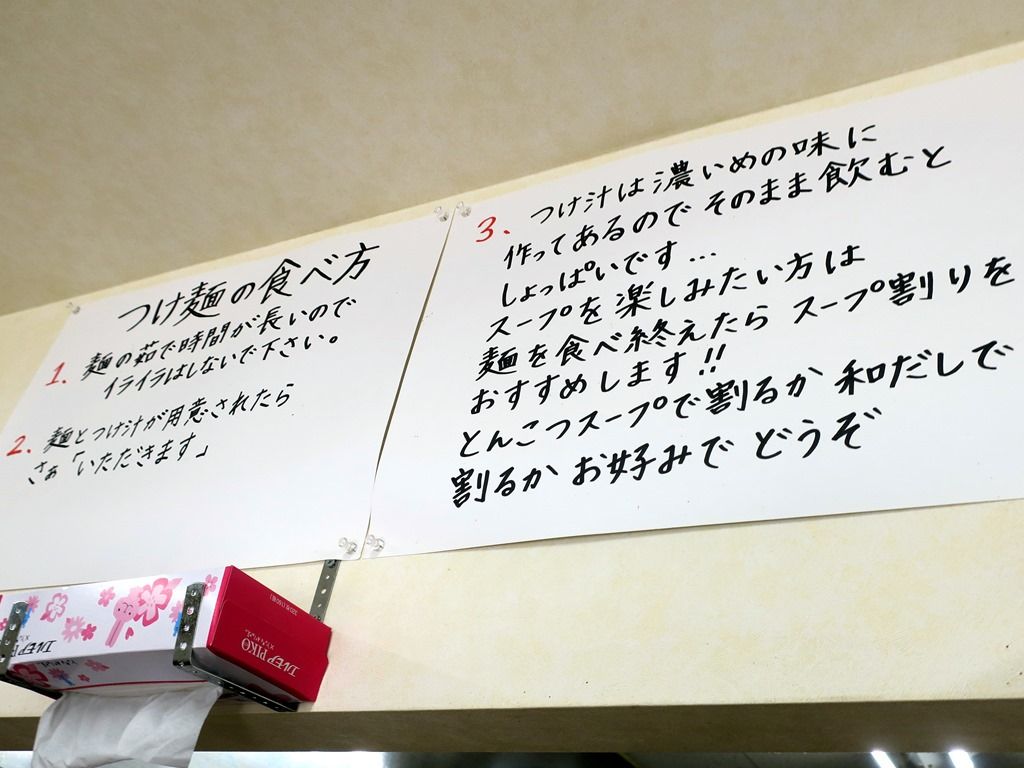 つけ麺の食べ方
1. 麺の茹で時間が長いので
イライラはしないで下さい。
2. 麺とつけ汁が用意されたら
さぁ「いただきます」
3. つけ汁は濃いめの味に
作ってあるので そのまま飲むと
しょっぱいです…
スープを楽しみたい方は
麺を食べ終えたら スープ割りを
おすすめします!!
とんこつスープで割るか 和だしで
割るか お好みで どうぞ
エルモア PIKO